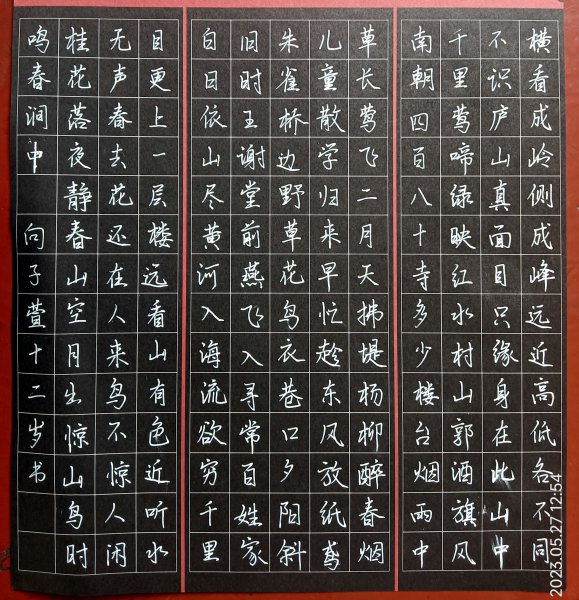 横看成岭侧成峰远近高低各不同
不识庐山真面目只缘身在此山中
千里莺啼绿映红水村山郭酒旗风
南朝四百八十寺多少楼台烟雨中
草长莺飞二月天拂堤杨柳醉春烟
儿童散学归来早忙趁东风放纸鸢
朱雀桥边野草花乌衣巷口夕阳斜
旧时王谢堂前燕飞入寻常百姓家
白日依山尽黄河入海流欲穷千里
目更上一层楼远看山有色近听水
无声春去花还在人来鸟不惊人闲
桂花落夜静春山空月出惊山鸟时
鸣春涧中 向子萱十二岁书
2023.05.27 12:54